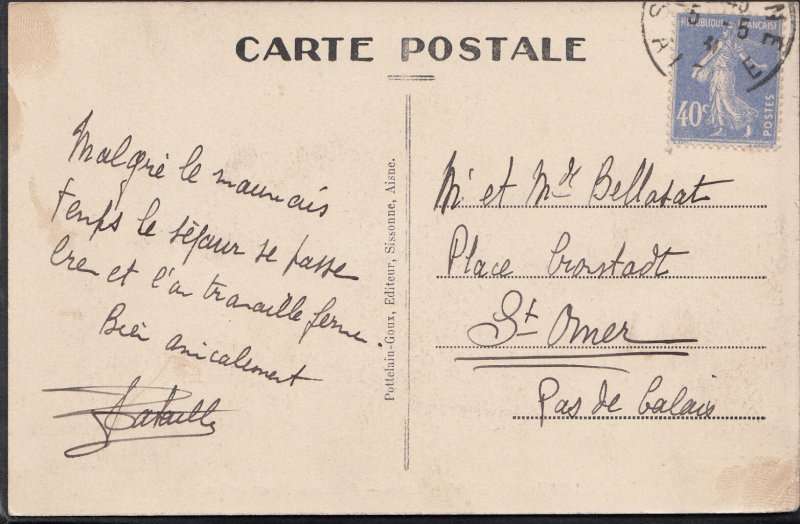 CARTE POSTALE
RÉPUBLIQUE FRANÇAISE
40c
POSTES
Malgré le mauvais
temps le séjour se passe
bien et l'on travaille ferme.
Bien amicalement
Bataille
Pottelain-Goux, Editeur, Sissonne, Aisne.
Mr et Me Bellasat
Place Cronstadt
St Omer
Pas de Calais